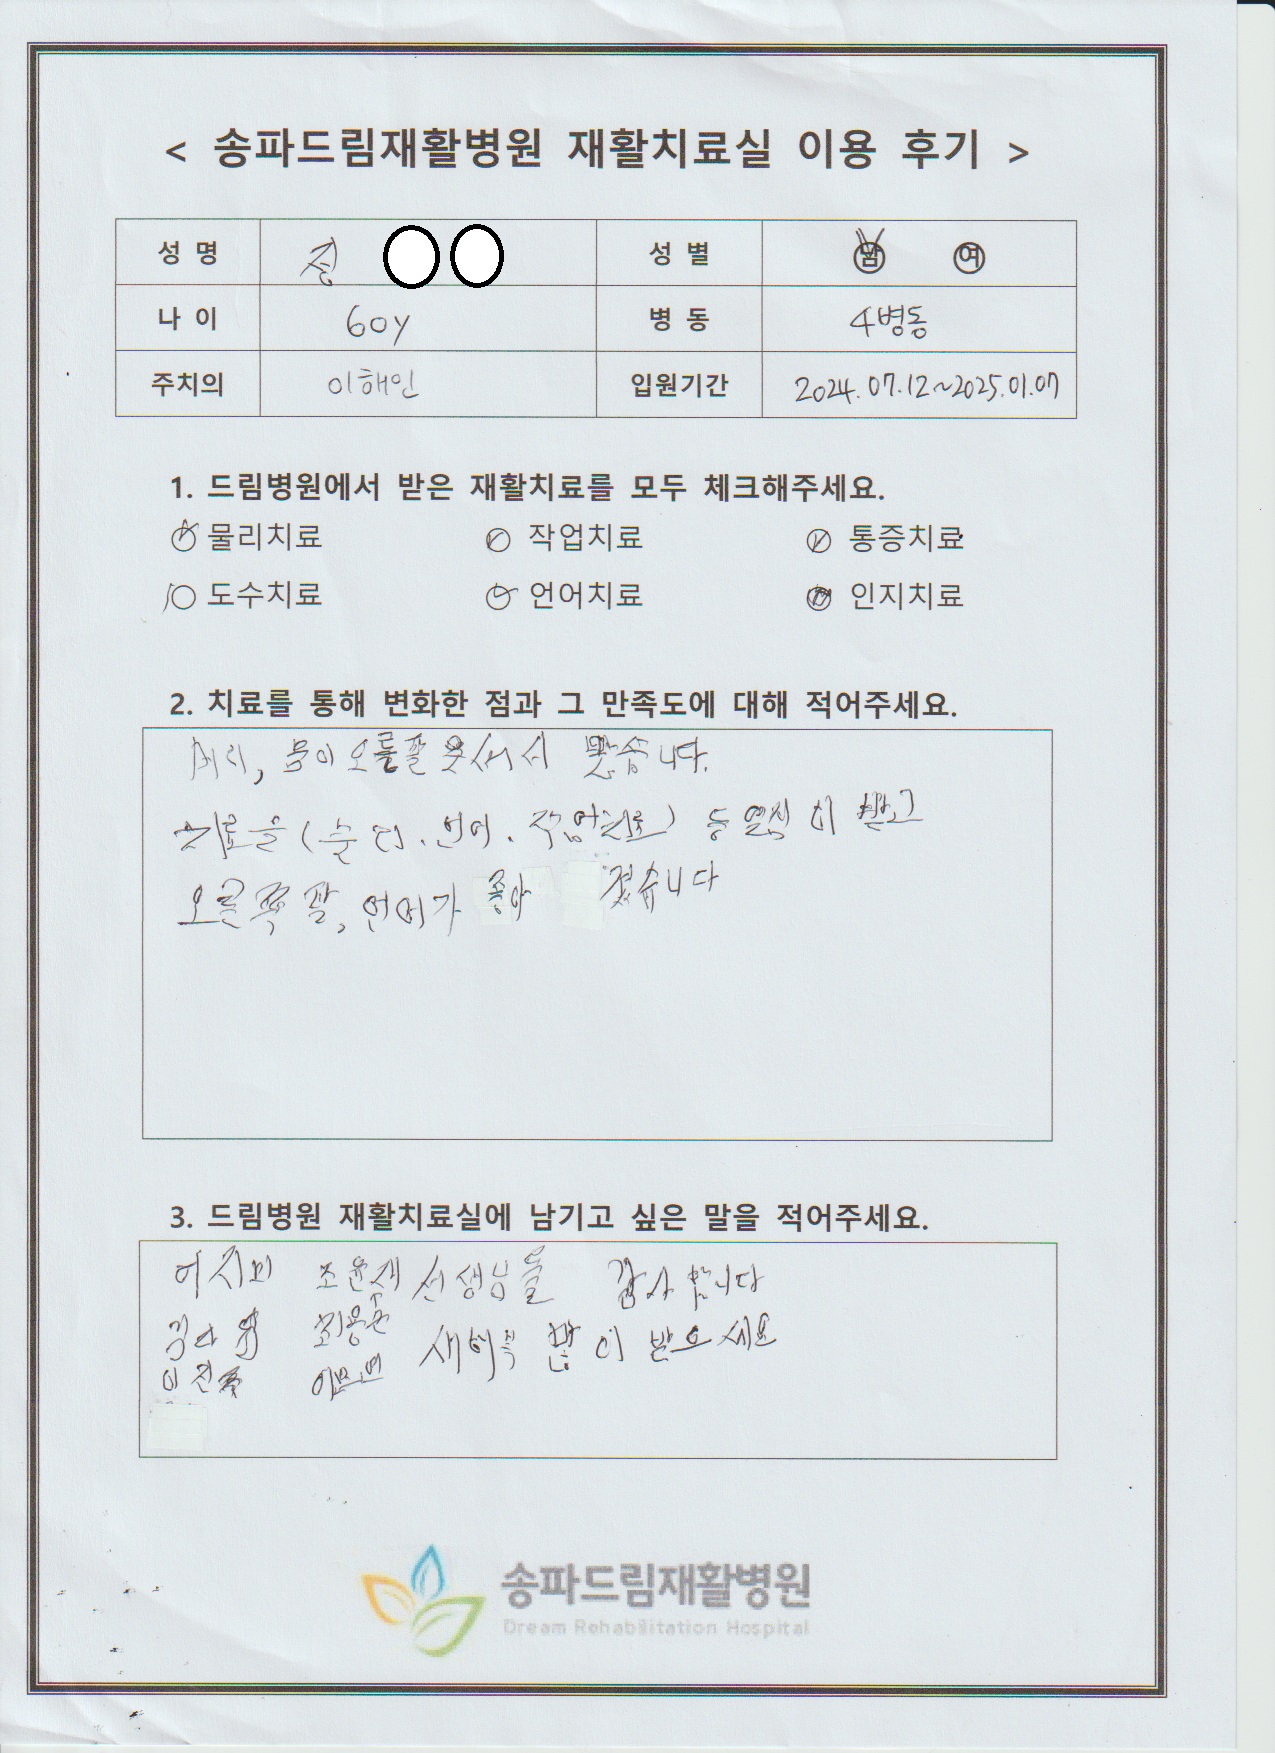 < 송파드림재활병원 재활치료실 이용 후기 >
성 명 성 별 남 여
나 이 60y 병 동 4병동
주치의 이해인 입원기간 2024.07.12~2025.01.07
1. 드림병원에서 받은 재활치료를 모두 체크해주세요.
물리치료 작업치료 통증치료
도수치료 언어치료 인지치료
2. 치료를 통해 변화한 점과 그 만족도에 대해 적어주세요.
오를팔 못써서 했습니다.
치료을 ( 언어. 작업치료) 등 열심히 받고
오른쪽 팔, 언어가 좋아 졌습니다
3. 드림병원 재활치료실에 남기고 싶은 말을 적어주세요.
조윤재 선생님들 감사합니다
최용준 새해복 많이 받으세요
송파드림재활병원
Dream Rehabilitation Hospital